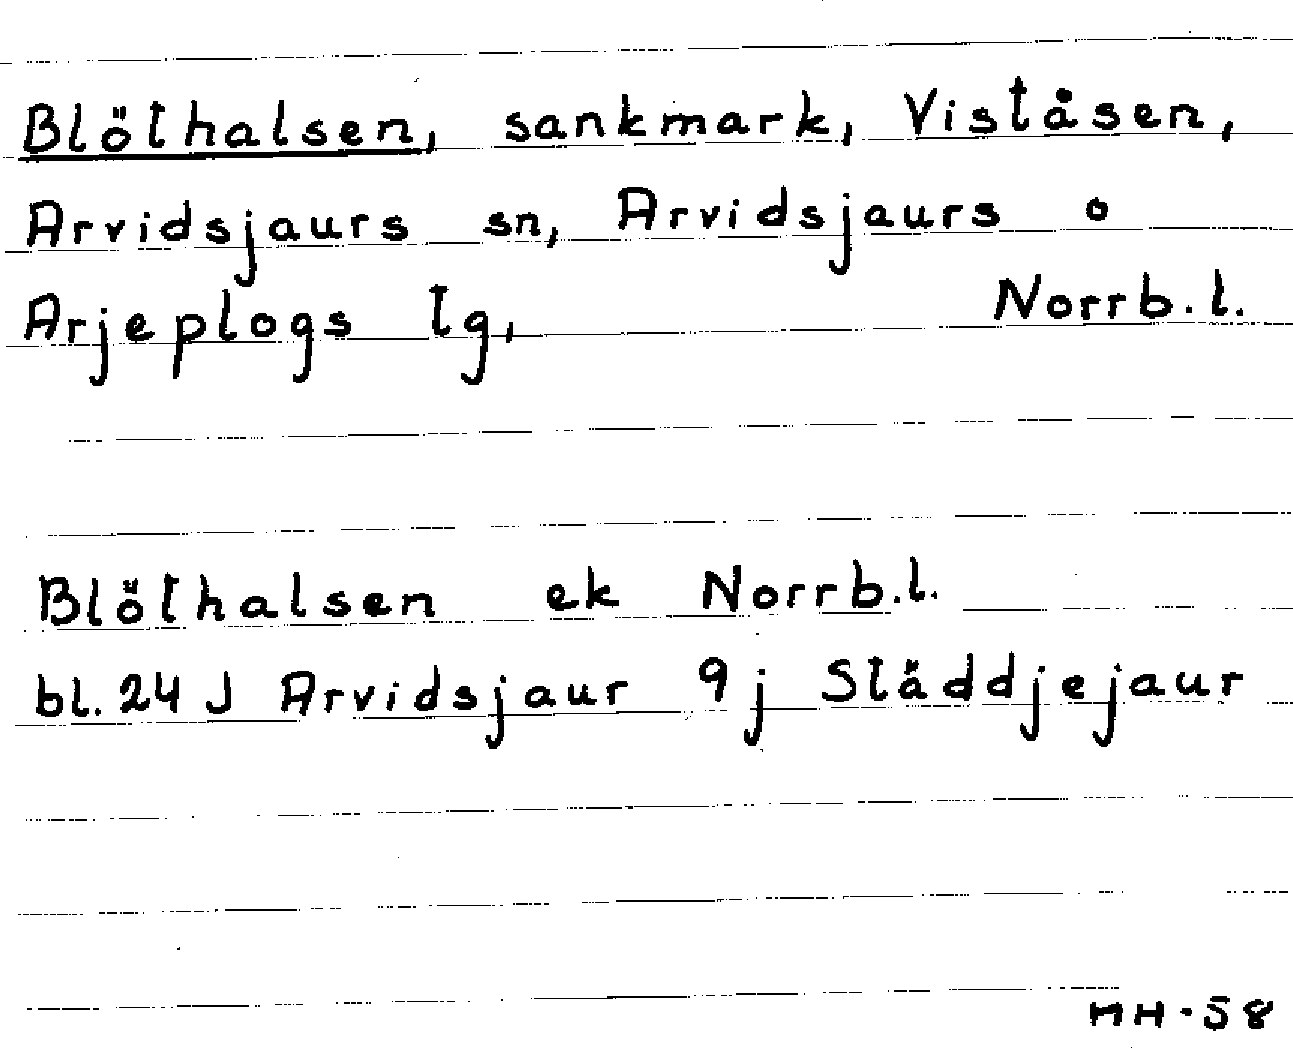 Blöthalsen, sankmark, Viståsen,
Arvidsjaurs sn, Arvidsjaurs o
Arjeplogs tg, Norrb.l.
Blöthalsen ek Norrb.l.
bl. 24 J Arvidsjaur 9j Ståddjejaur
MH-58